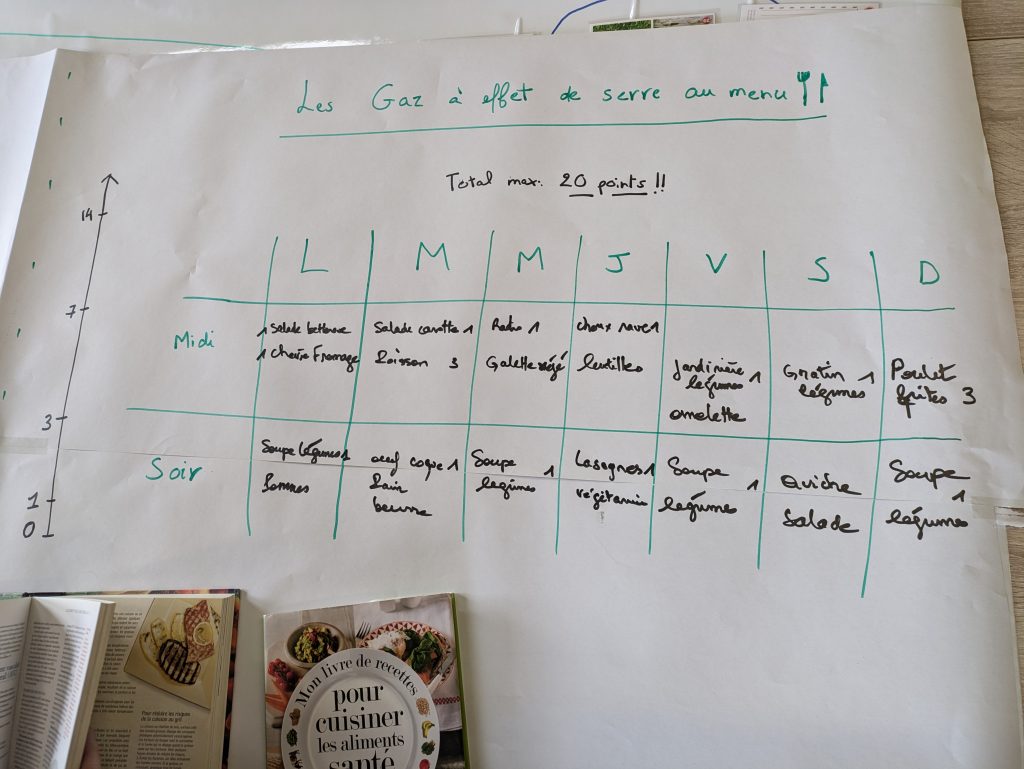 Les Gaz à effet de serre au menu
Total max. 20 points !!
14
7
3
1
0
L M M J V S D
Midi
1 Salade betterave
1 Chèvre Fromage
Salade carotte 1
Poisson 3
Radis 1
Galette végé
choux rave 1
lentilles
Jardinière 1
légumes
omelette
Gratin 1
légumes
Poulet
frites 3
Soir
Soupe légumes 1
Pommes
oeuf coque 1
Pain
beurre
Soupe 1
légumes
Lasagnes 1
Soupe 1
légumes
Quiche
Salade
Soupe
1
légumes
Pour réduire les risques
de la cuisson au gril
Mon livre de recettes
pour
cuisiner
les aliments
santé